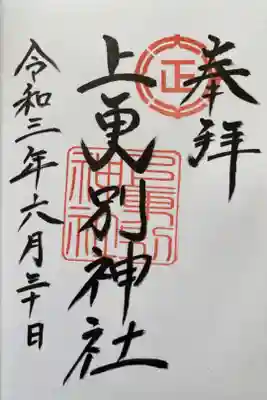 奉拝
正
上更別神社
上更別
神社
令和三年六月三十日